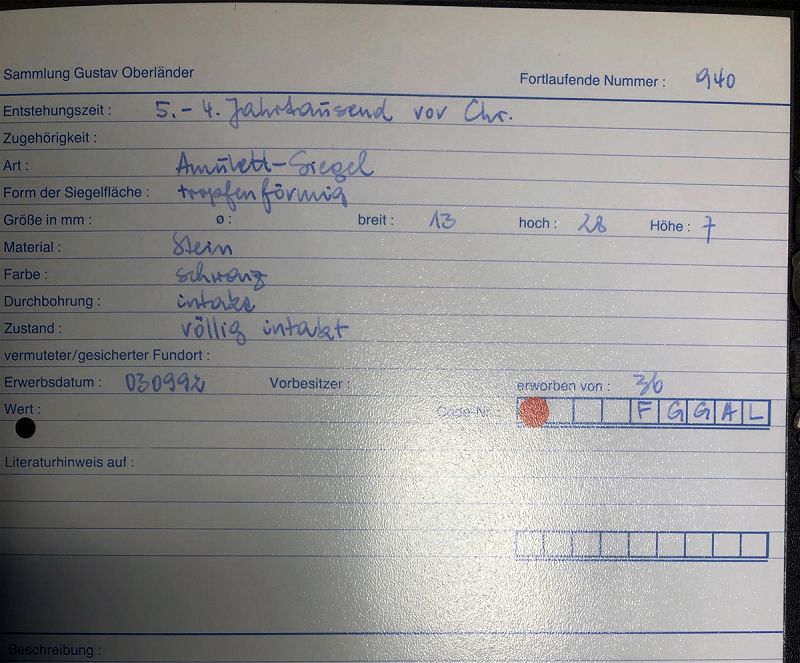 Sammlung Gustav Oberländer Fortlaufende Nummer : 940
Entstehungszeit : 5.-4. Jahrtausend vor Chr.
Zugehörigkeit :
Art : Amulett-Siegel
Form der Siegelfläche : tropfenförmig
Größe in mm : ø : breit : 13 hoch : 28 Höhe : 7
Material : Stein
Farbe : schwarz
Durchbohrung : intakt
Zustand : völlig intakt
vermuteter/gesicherter Fundort :
Erwerbsdatum : 030992 Vorbesitzer : erworben von : 36
Wert : Code-Nr. F G G A L
Literaturhinweis auf :
Beschreibung :